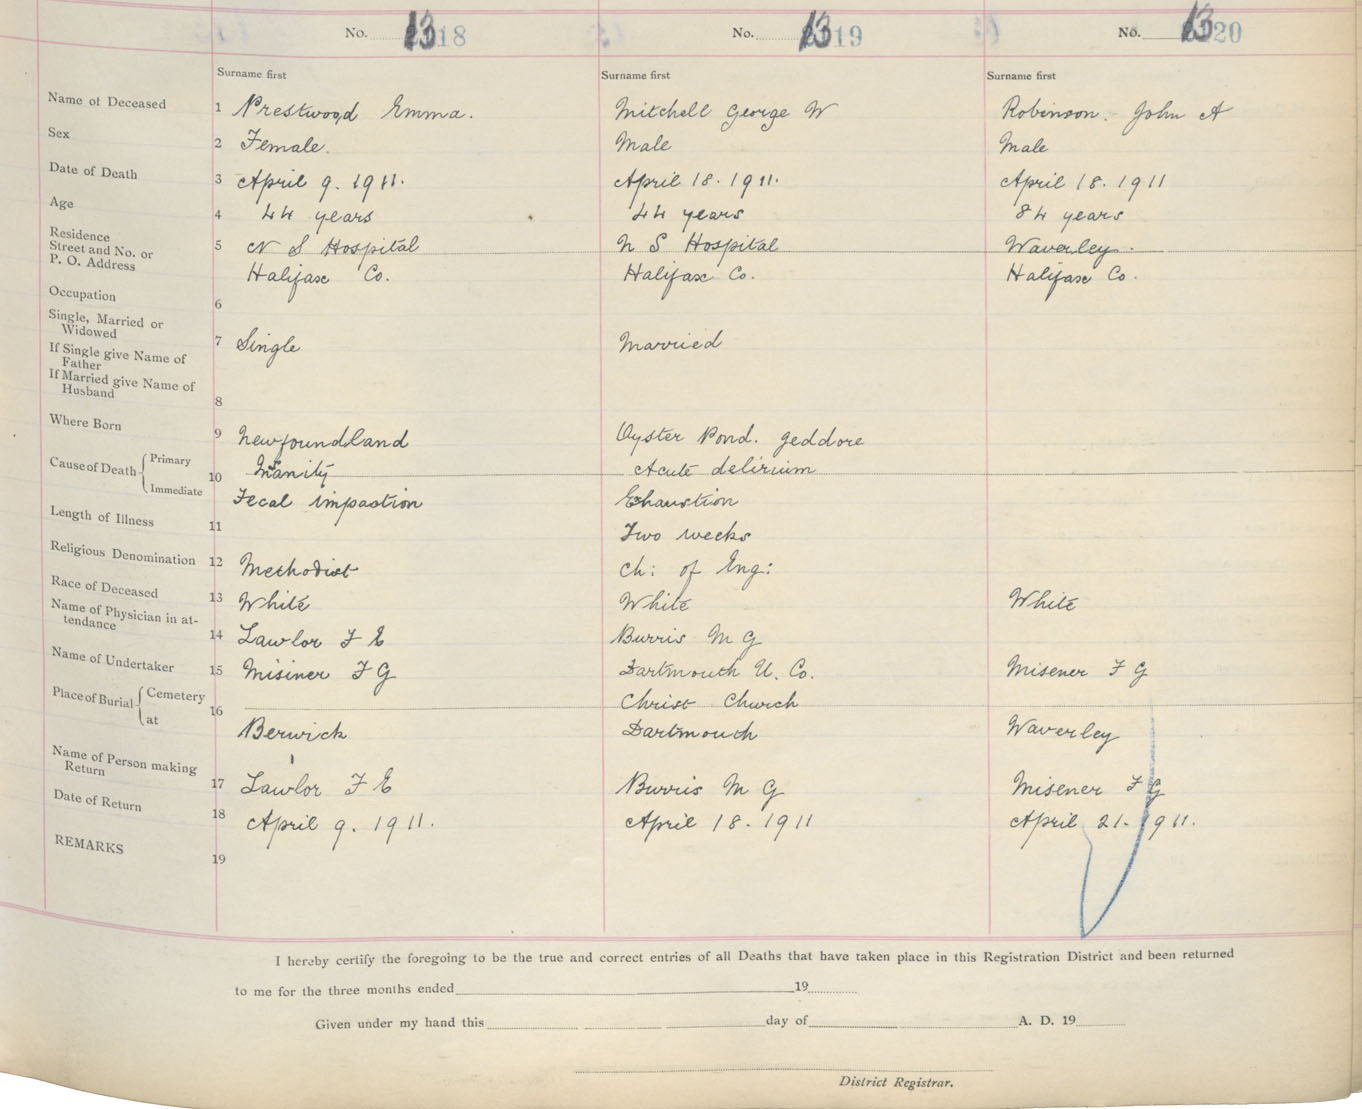 No. 1318 No. 1319 No. 1320
Surname first Surname first Surname first
Name of Deceased 1 Prestwood Emma. Mitchell George W Robinson. John A
Sex 2 Female. Male Male
Date of Death 3 April 9. 1911. April 18. 1911. April 18. 1911
Age 4 44 years 44 years 84 years
Residence
Street and No. or 5 N S Hospital N S Hospital Waverley.
P. O. Address Halifax Co. Halifax Co. Halifax Co.
Occupation 6
Single, Married or
Widowed 7 Single Married
If Single give Name of
Father
If Married give Name of
Husband 8
Where Born 9 Newfoundland Oyster Pond. Jeddore
Cause of Death Primary 10 Insanity Acute delirium
Immediate Fecal impaction Exhaustion
Length of Illness 11 Two weeks
Religious Denomination 12 Methodist Ch: of Eng:
Race of Deceased 13 White White White
Name of Physician in at-
tendance 14 Lawlor F E Burris M G
Name of Undertaker 15 Misiner F G Dartmouth U. Co. Misener F G
Place of Burial Cemetery 16 Christ Church
at Berwick Dartmouth Waverley
Name of Person making
Return 17 Lawlor F E Burris M G Misener F G
Date of Return 18 April 9. 1911. April 18. 1911 April 21. 1911.
REMARKS 19
I hereby certify the foregoing to be the true and correct entries of all Deaths that have taken place in this Registration District and been returned
to me for the three months ended 19
Given under my hand this day of A. D. 19
District Registrar.